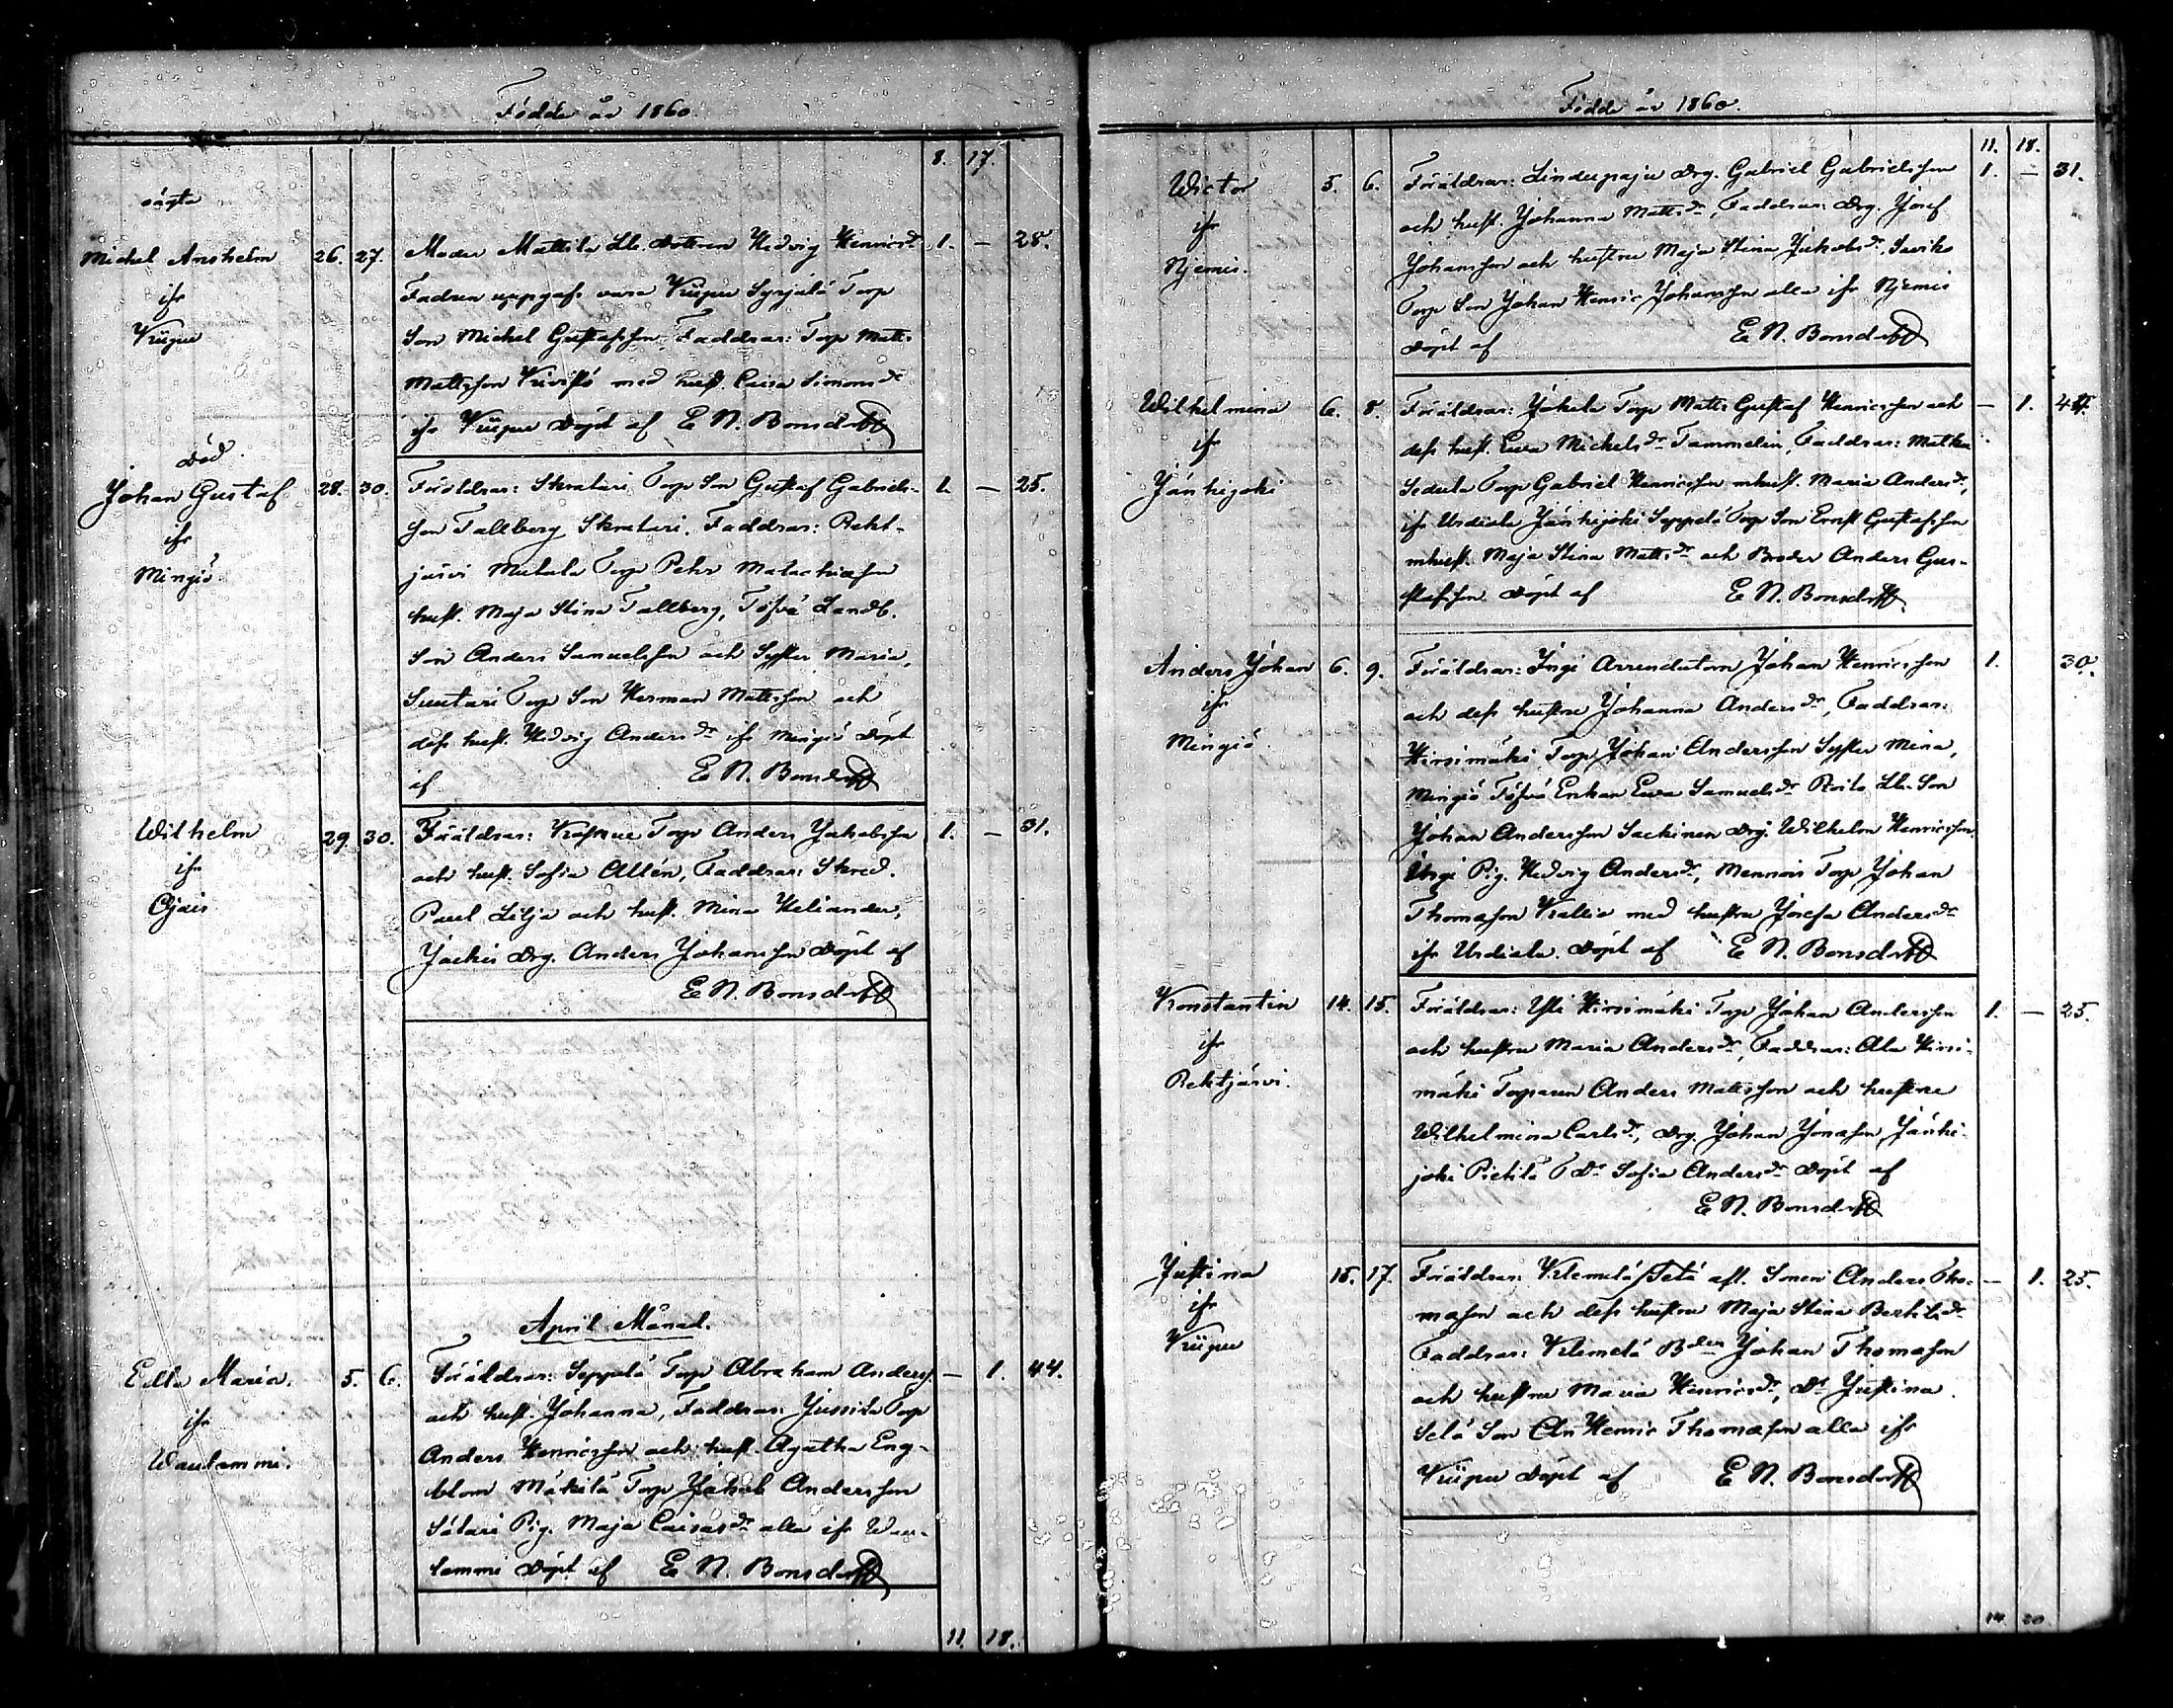 Födde år 1860.
8. 17.
oägta
Michel Anshelm 26. 27. Moder Mattila Ll. dottren Hedvig Henricsdr 1. – 28.
ifr Fadren uppgafs vara Kuipu Syrjälä Torp
Son Michel Gustafsson, Faddrar: Torp Matts
Mattsson Kivistö med hust. Caisa Simonsdr
ifr döpt af E N. Bonsdorff
Död.
Johan Gustaf 28. 30. Föräldrar: Skratari Torp Son Gustaf Gabriels- 1. – 25.
ifr son Tallberg Skratari. Faddrar: Rekt-
Mingiö järvi Torp Petter
hust. Maja Stina Tallberg, Töfvä Landb.
Son Anders Samuelsson och Syster Maria,
Suutari Torp Son Herman Mattsson och
dess hust. Hedvig Andersdr ifr Mingiö döpt
af E N. Bonsdorff
Wilhelm 29. 30. Föräldrar: Torp Anders Jakobsson 1. – 31.
ifr och hust. Sofia Allén, Faddrar: Skred.
Paul Lilja och hust. Mina Heliander,
Drg. Anders Johansson döpt af
E N. Bonsdorff
April Månad.
Edla Maria. 5. 6. Föräldrar: Seppälä Torp Abraham Anderss. – 1. 44.
ifr och hust. Johanna, Faddrar: Jussila Torp
Wautammi. Anders Henricsson och hust. Agatha Eng-
blom Mäkilä Torp Jakob Andersson
Sätari Pig. Maja Caisasdr alla ifr Wau-
tammi döpt af E N. Bonsdorff
11. 18.
Födde år 1860.
11. 18.
Wictor 5. 6. Föräldrar: Lindupaju Drg. Gabriel Gabrielsson 1. – 31.
ifr och hust. Johanna Mattsdr, Faddrar: Drg. Josef
Njemis. Johansson och hustru Maja Stina Jakobsdr.
Torp Son Johan Henric Johansson alla ifr Njemis
döpt af E N. Bonsdorff
Wilhelmina 6. 8. Föräldrar: Jokela Torp Matts Gustaf Henricsson och – 1.
ifr dess hust. Eva Michelsdr Tammelin, Faddrar: Matku
Jänhijoki Torp Gabriel Henricsson mhust. Maria Andersdr,
ifr Urdiala Jänhijoki Seppälä Torp Son Ernst Gustafsson
mhust. Maja Stina Mattsdr och Broder Anders Gus-
tafsson döpt af E N. Bonsdorff
Anders Johan 6. 9. Föräldrar: Yrgi Arrendatorn Johan Henricsson 1. 30.
ifr och dess hustru Johanna Andersdr, Faddrar:
Mingiö. Hirsimäki Torp Johan Andersson Syster Mina,
Mingiö Töfvä Enkan Eva Samuelsdr Ll. Son
Johan Andersson Sackinen Drg. Wilhelm Henricsson
Pig. Hedvig Andersdr, Mennois Torp Johan
Thomasson Kallio med hustru Josefa Andersdr
ifr Urdiala. döpt af E N. Bonsdorff
Konstantin 14. 15. Föräldrar: Yli Hirsimäki Torp Johan Andersson 1. – 25.
ifr och hustru Maria Andersdr, Faddrar: Ala Hirsi-
Rehtjärvi. mäki Torparen Anders Mattsson och hustru
Wilhelmina Carlsdr, Drg. Johan Jonasson Jänhi-
joki Pietilä T Dr Sofia Andersdr döpt af
E N. Bonsdorff
Justina 15. 17. Föräldrar: Klemelä Anders Tho- – 1. 25.
ifr masson och dess hustru Maja Stina Bertilsdr
Faddrar: Klemelä Bder Johan Thomasson
och hustru Maria Henricsdr, Dr Justina.
Selä Son Henric Thomasson alla ifr
döpt af E N. Bonsdorff
14. 20.